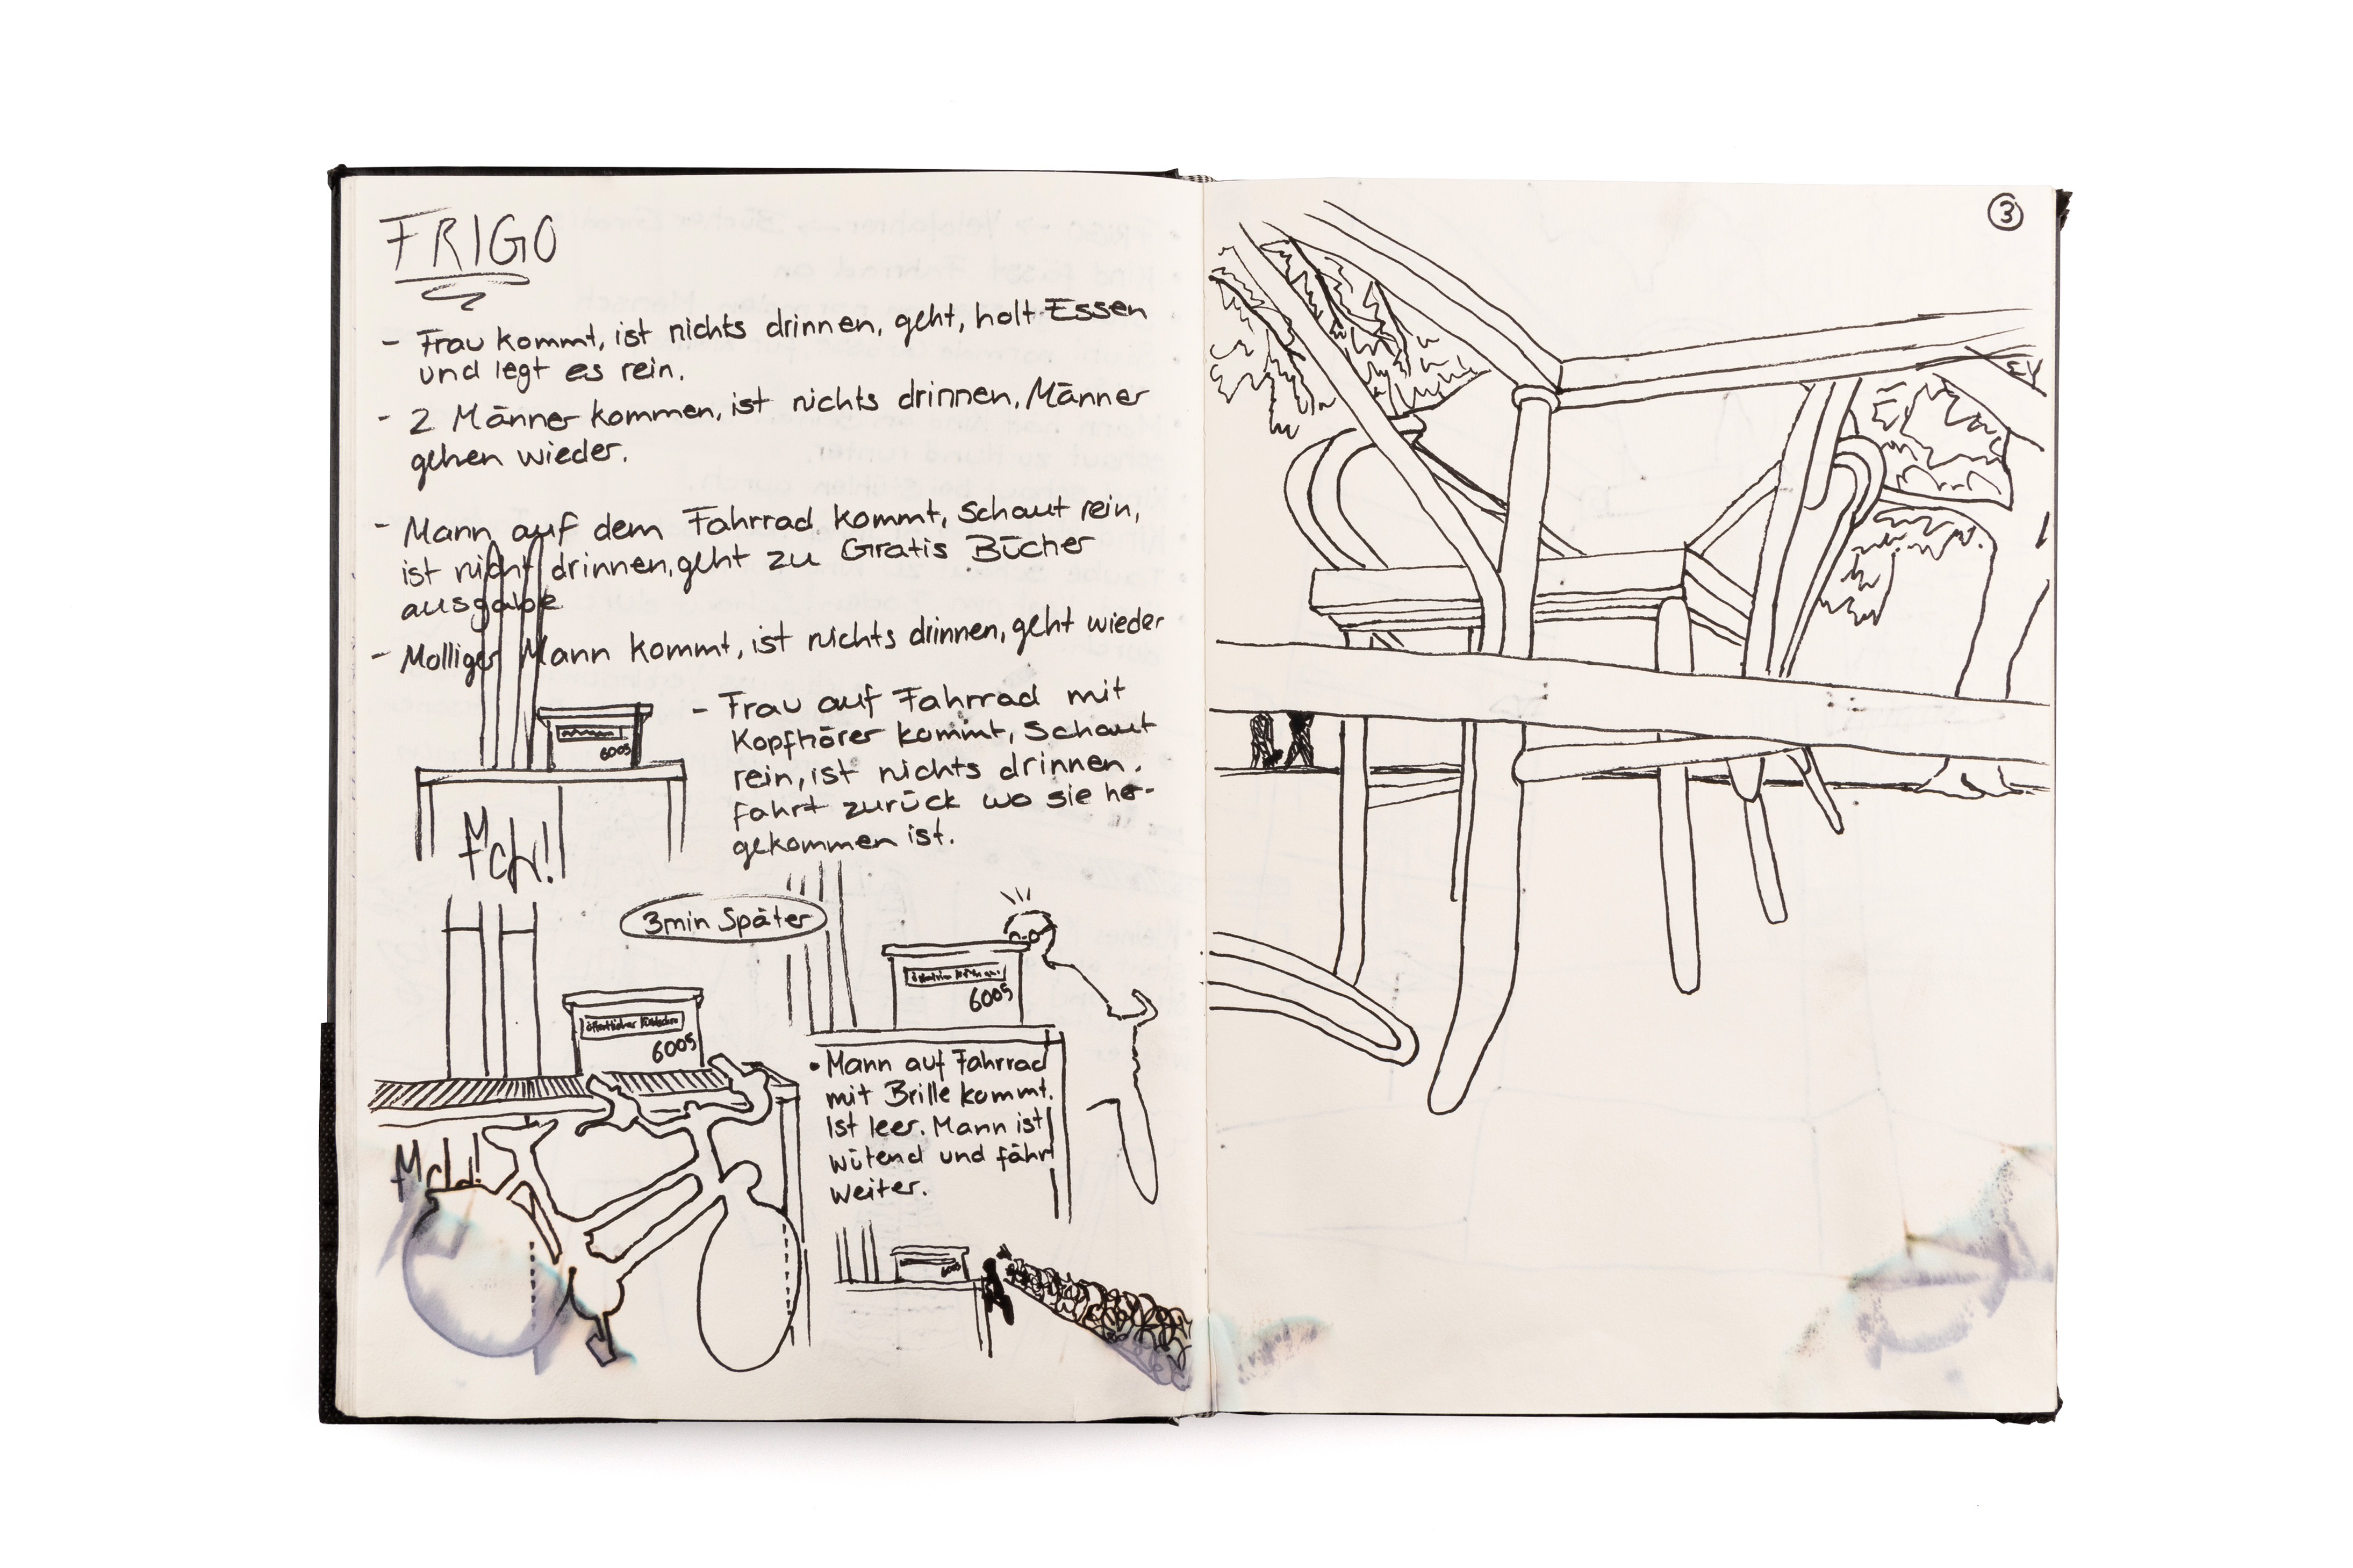 FRIGO
- Frau kommt, ist nichts drinnen, geht, holt Essen
und legt es rein.
- 2 Männer kommen, ist nichts drinnen. Männer
gehen wieder.
- Mann auf dem Fahrrad kommt, schaut rein,
ist nicht drinnen, geht zu Gratis Bücher
ausgabe
- Molliger Mann kommt, ist nichts drinnen, geht wieder
6005
- Frau auf Fahrrad mit
Kopfhörer kommt, schaut
rein, ist nichts drinnen.
fahrt zurück wo sie her-
gekommen ist.
3min Später
öffentlicher
6005
6005
• Mann auf Fahrrad
mit Brille kommt.
Ist leer. Mann ist
wütend und fährt
weiter.
6005
3